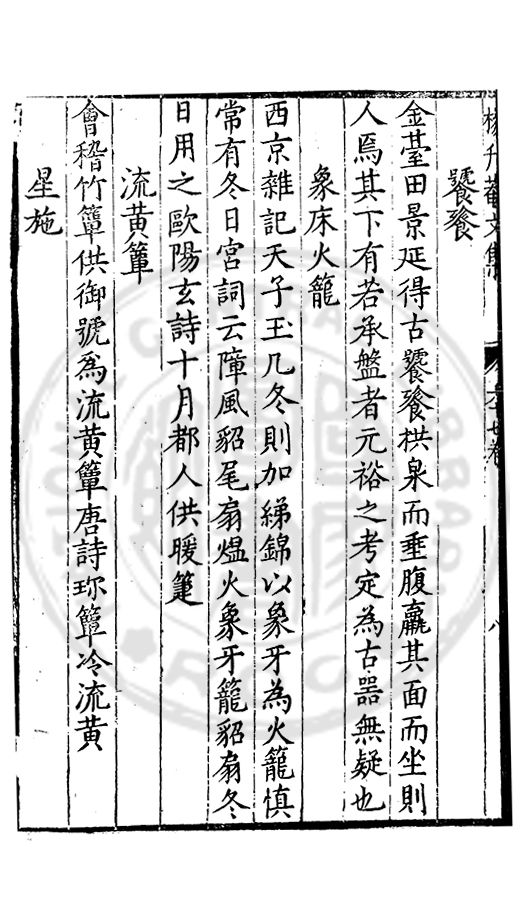 楊升菴文集 卷六十七卷 八
饕餮
金臺田景延得古饕餮栱泉而垂腹羸其面而坐則
人焉其下有若承盤者元裕之考定為古器無疑也
象床火籠
西京雜記天子玉几冬則加綈錦以象牙為火籠慎
常有冬日宮詞云障風貂尾扇熅火象牙籠貂扇冬
日用之歐陽玄詩十月都人供暖箑
流黃簟
會稽竹簟供御號為流黃簟唐詩珎簟冷流黃
星施